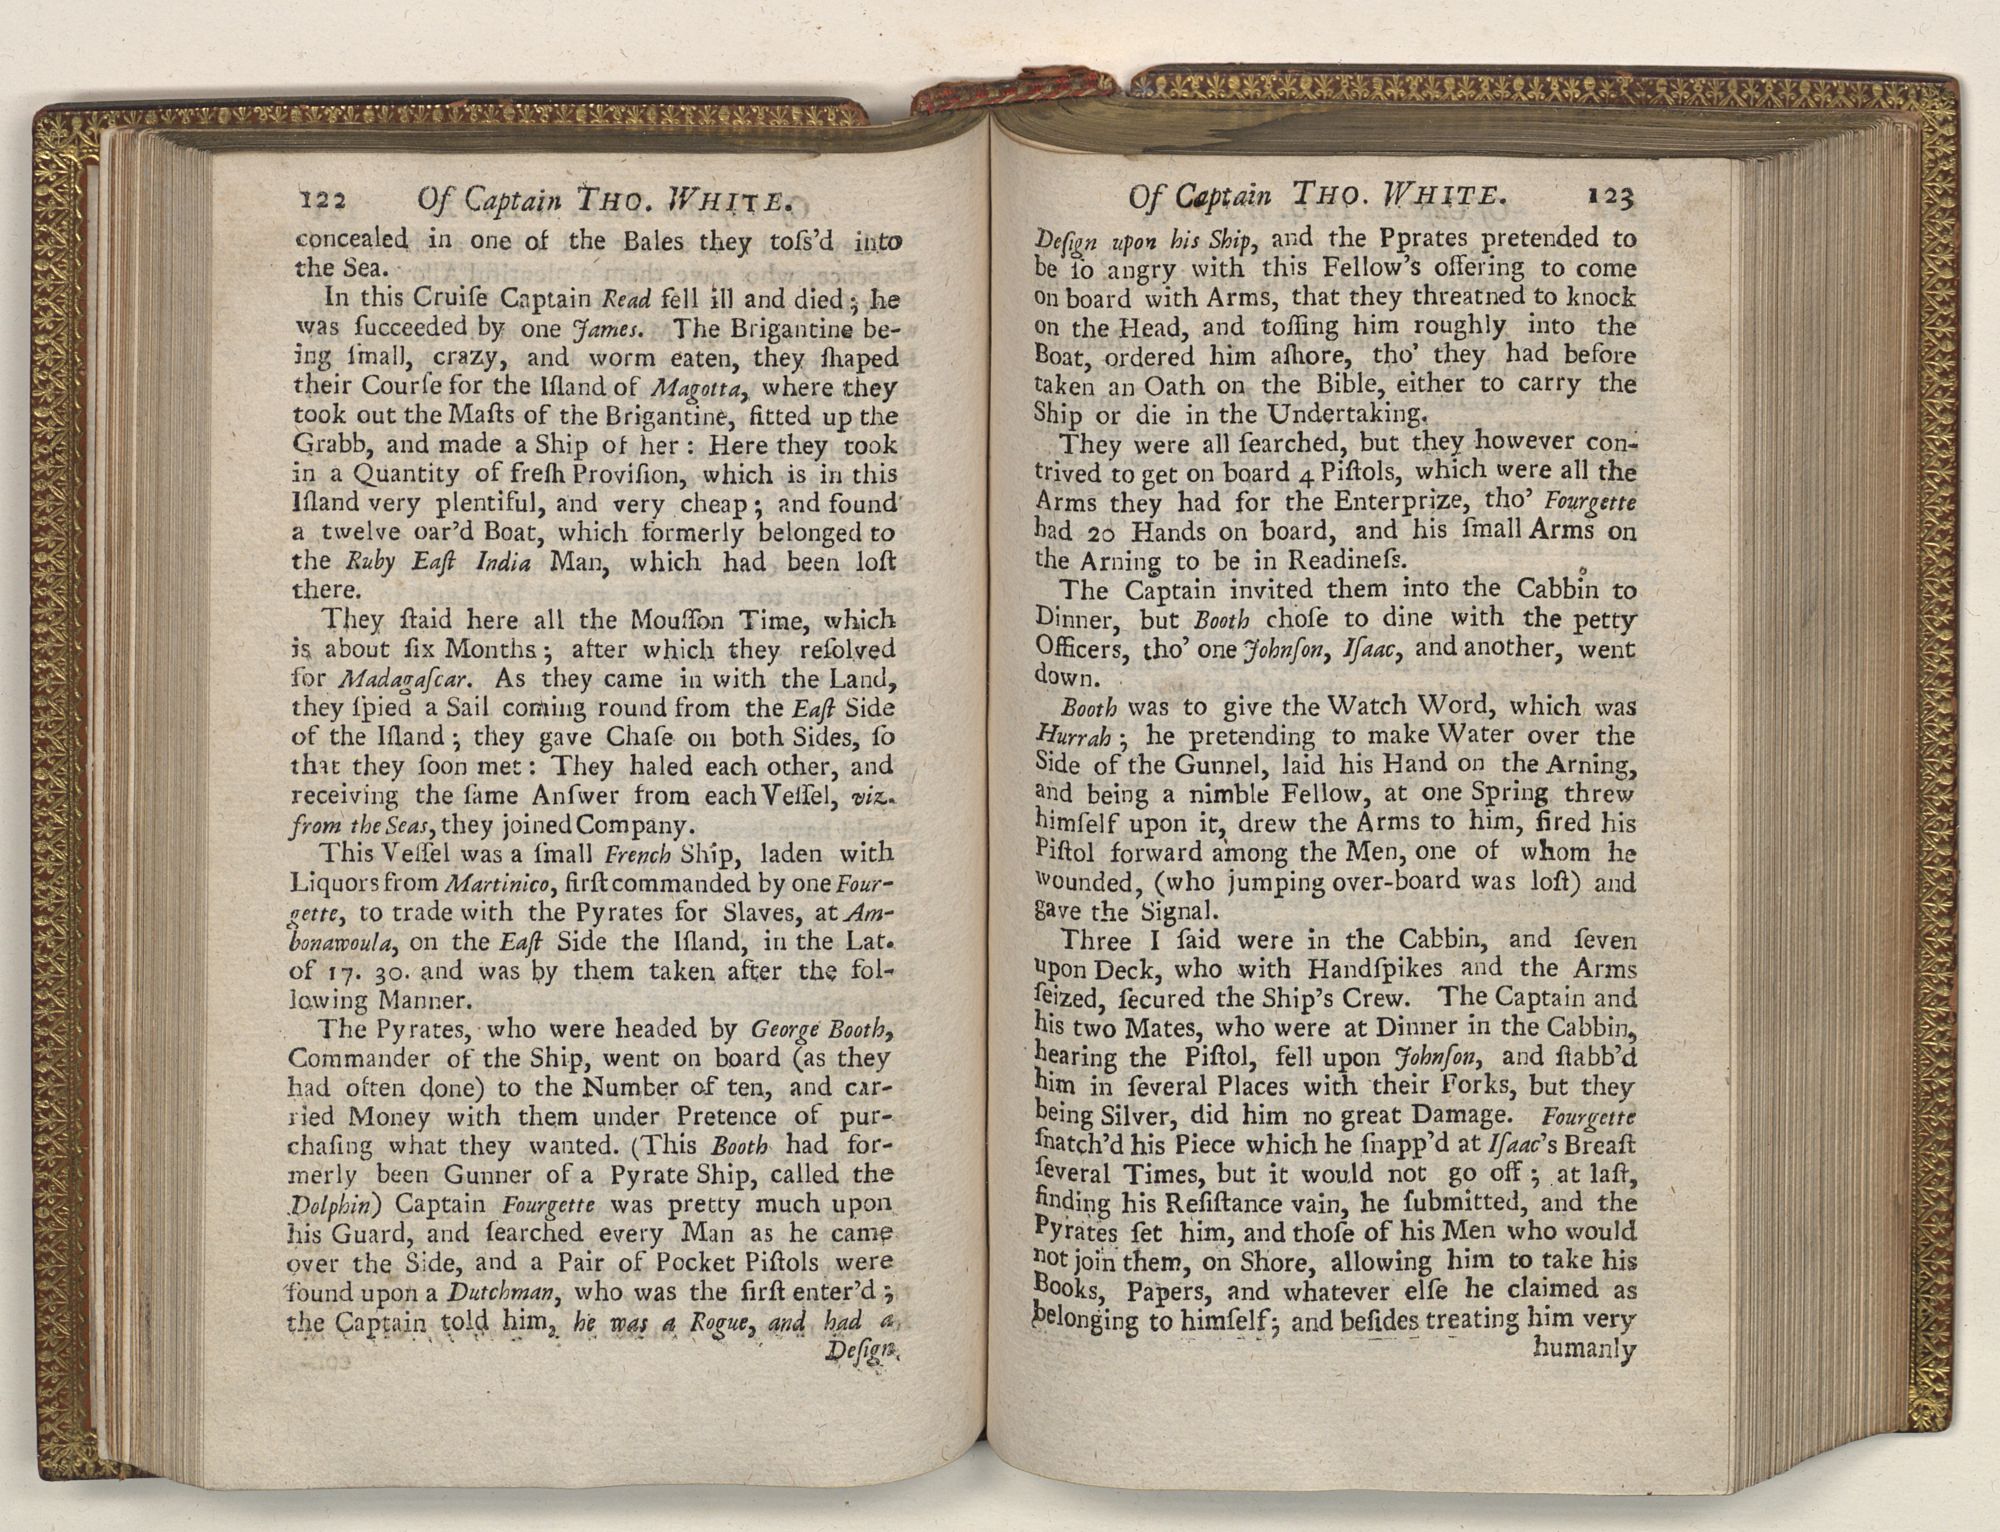 122 Of Captain THO. WHITE.
concealed in one of the Bales they toſs'd into
the Sea.
In this Cruiſe Captain Read fell ill and died; he
was ſucceeded by one James. The Brigantine be-
ing ſmall, crazy, and worm eaten, they ſhaped
their Courſe for the Iſland of Magotta, where they
took out the Maſts of the Brigantine, fitted up the
Grabb, and made a Ship of her: Here they took
in a Quantity of freſh Proviſion, which is in this
Iſland very plentiful, and very cheap; and found
a twelve oar'd Boat, which formerly belonged to
the Ruby Eaſt India Man, which had been loſt
there.
They ſtaid here all the Mouſſon Time, which
is about ſix Months; after which they reſolved
for Madagaſcar. As they came in with the Land,
they ſpied a Sail coming round from the Eaſt Side
of the Iſland; they gave Chaſe on both Sides, ſo
that they ſoon met: They haled each other, and
receiving the ſame Anſwer from each Veſſel, viz.
from the Seas, they joined Company.
This Veſſel was a ſmall French Ship, laden with
Liquors from Martinico, firſt commanded by one Four-
gette, to trade with the Pyrates for Slaves, at Am-
bonawoula, on the Eaſt Side the Iſland, in the Lat.
of 17. 30. and was by them taken after the fol-
lowing Manner.
The Pyrates, who were headed by George Booth,
Commander of the Ship, went on board (as they
had often done) to the Number of ten, and car-
ried Money with them under Pretence of pur-
chaſing what they wanted. (This Booth had for-
merly been Gunner of a Pyrate Ship, called the
Dolphin) Captain Fourgette was pretty much upon
his Guard, and ſearched every Man as he came
over the Side, and a Pair of Pocket Piſtols were
found upon a Dutchman, who was the firſt enter'd;
the Captain told him, he was a Rogue, and had a
Deſign
Of Captain THO. WHITE. 123
Deſign upon his Ship, and the Pprates pretended to
be ſo angry with this Fellow's offering to come
on board with Arms, that they threatned to knock
on the Head, and toſſing him roughly into the
Boat, ordered him aſhore, tho' they had before
taken an Oath on the Bible, either to carry the
Ship or die in the Undertaking.
They were all ſearched, but they however con-
trived to get on board 4 Piſtols, which were all the
Arms they had for the Enterprize, tho' Fourgette
had 20 Hands on board, and his ſmall Arms on
the Arning to be in Readineſs.
The Captain invited them into the Cabbin to
Dinner, but Booth choſe to dine with the petty
Officers, tho' one Johnſon, Iſaac, and another, went
down.
Booth was to give the Watch Word, which was
Hurrah; he pretending to make Water over the
Side of the Gunnel, laid his Hand on the Arning,
and being a nimble Fellow, at one Spring threw
himſelf upon it, drew the Arms to him, fired his
Piſtol forward among the Men, one of whom he
wounded, (who jumping over-board was loſt) and
gave the Signal.
Three I ſaid were in the Cabbin, and ſeven
upon Deck, who with Handſpikes and the Arms
ſeized, ſecured the Ship's Crew. The Captain and
his two Mates, who were at Dinner in the Cabbin,
hearing the Piſtol, fell upon Johnſon, and ſtabb'd
him in ſeveral Places with their Forks, but they
being Silver, did him no great Damage. Fourgette
ſnatch'd his Piece which he ſnapp'd at Iſaac's Breaſt
ſeveral Times, but it would not go off; at laſt,
finding his Reſiſtance vain, he ſubmitted, and the
Pyrates ſet him, and thoſe of his Men who would
not join them, on Shore, allowing him to take his
Books, Papers, and whatever elſe he claimed as
belonging to himſelf; and beſides treating him very
humanly